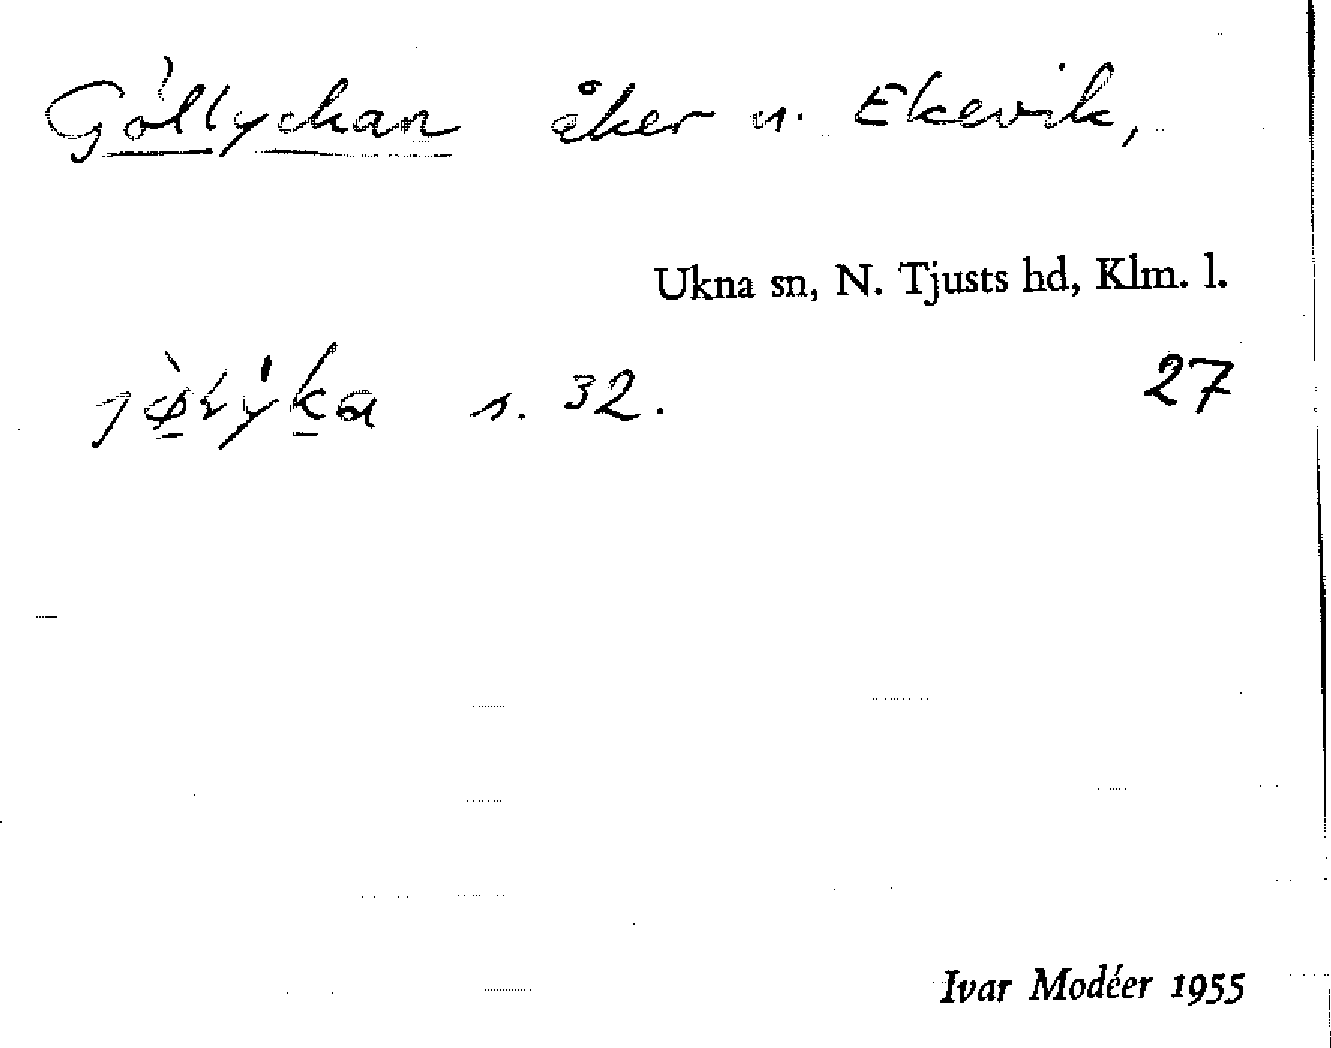 Göllyckan åker u. Ekevik,
Ukna sn, N. Tjusts hd, Klm. l.
s. 32. 27
Ivar Modéer 1955